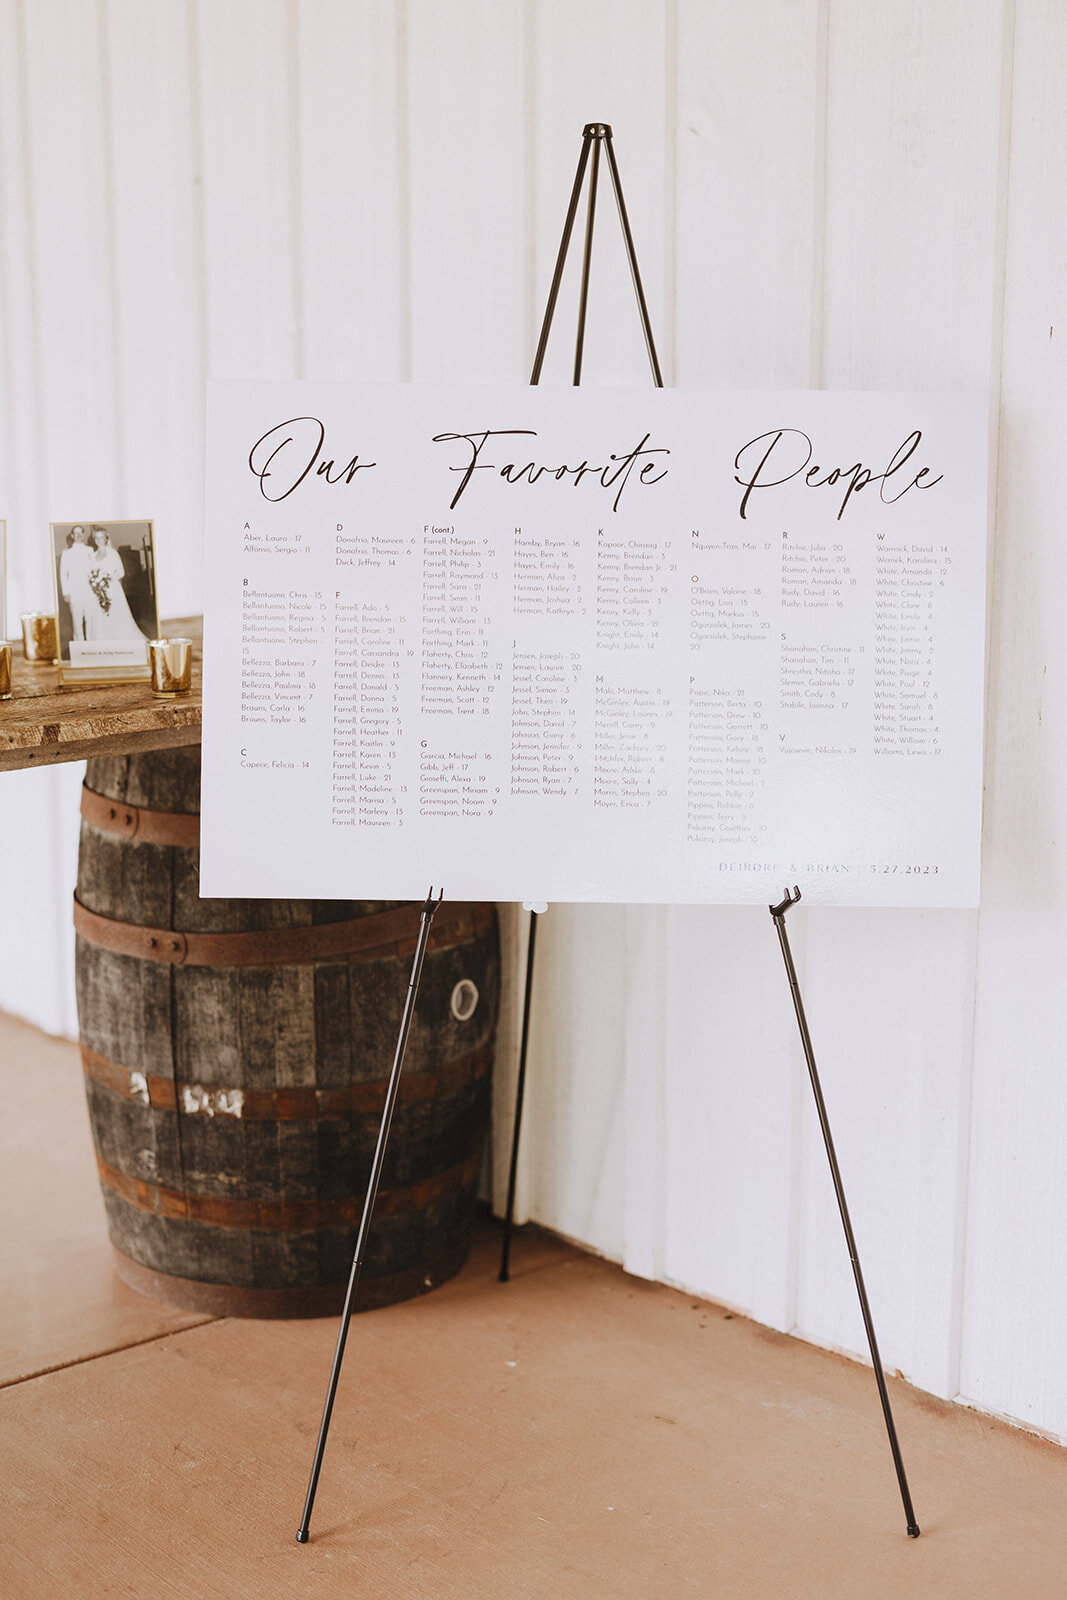 Our Favorite People
A
Aber, Laura - 17
Alfonso, Sergio - 11
B
Bellantuono, Chris - 15
Bellantuono, Nicole - 15
Bellantuono, Regina - 5
Bellantuono, Robert - 5
Bellantuono, Stephen -
15
Bellezza, Barbara - 7
Bellezza, John - 18
Bellezza, Paulina - 18
Bellezza, Vincent - 7
Brauns, Carla - 16
Brauns, Taylor - 16
C
Capece, Felicia - 14
D
Donofrio, Maureen - 6
Donofrio, Thomas - 6
Duck, Jeffrey - 14
F
Farrell, Ada - 5
Farrell, Brendan - 15
Farrell, Brian - 21
Farrell, Caroline - 11
Farrell, Cassandra - 19
Farrell, Deidre - 13
Farrell, Dennis - 13
Farrell, Donald - 5
Farrell, Donna - 5
Farrell, Emma - 19
Farrell, Gregory - 5
Farrell, Heather - 11
Farrell, Kaitlin - 9
Farrell, Karen - 13
Farrell, Kevin - 5
Farrell, Luke - 21
Farrell, Madeline - 13
Farrell, Marisa - 5
Farrell, Marleny - 13
Farrell, Maureen - 3
F (cont.)
Farrell, Megan - 9
Farrell, Nicholas - 21
Farrell, Philip - 3
Farrell, Raymond - 13
Farrell, Sara - 21
Farrell, Sean - 11
Farrell, Will - 15
Farrell, William - 13
Farthing, Erin - 11
Farthing, Mark - 11
Flaherty, Chris - 12
Flaherty, Elizabeth - 12
Flannery, Kenneth - 14
Freeman, Ashley - 12
Freeman, Scott - 12
Freeman, Trent - 18
G
Garcia, Michael - 16
Gibb, Jeff - 17
Gioseffi, Alexa - 19
Greenspan, Miriam - 9
Greenspan, Noam - 9
Greenspan, Nora - 9
H
Hamby, Bryan - 16
Hayes, Ben - 16
Hayes, Emily - 16
Herman, Aliza - 2
Herman, Hailey - 2
Herman, Joshua - 2
Herman, Kathryn - 2
J
Jensen, Joseph - 20
Jensen, Lauren - 20
Jessel, Caroline - 3
Jessel, Simon - 3
Jessel, Theo - 19
John, Stephen - 14
Johnson, David - 7
Johnson, Ginny - 6
Johnson, Jennifer - 9
Johnson, Peter - 9
Johnson, Robert - 6
Johnson, Ryan - 7
Johnson, Wendy - 7
K
Kapoor, Chiraag - 17
Kenny, Brendan - 3
Kenny, Brendan Jr - 21
Kenny, Brian - 3
Kenny, Caroline - 19
Kenny, Colleen - 3
Kenny, Kelly - 3
Kenny, Olivia - 21
Knight, Emily - 14
Knight, John - 14
M
Maki, Matthew - 8
McGinley, Austin - 19
McGinley, Lauren - 19
Merrill, Corey - 9
Miller, Jesse - 8
Miller, Zachary - 20
Mistifer, Robert - 8
Moore, Addie - 8
Moore, Sally - 4
Morris, Stephen - 20
Moyer, Erica - 7
N
Nguyen-Tran, Mai - 17
O
O'Brien, Valorie - 18
Oettig, Lisa - 15
Oettig, Markus - 15
Ogorzalek, James - 20
Ogorzalek, Stephanie -
20
P
Papic, Nika - 21
Patterson, Berta - 10
Patterson, Drew - 10
Patterson, Garrett - 10
Patterson, Gary - 18
Patterson, Kelsey - 18
Patterson, Marisa - 10
Patterson, Mark - 10
Patterson, Michael - 2
Patterson, Polly - 2
Pippins, Robbie - 6
Pippins, Terry - 6
Pokorny, Courtney - 10
Pokorny, Joseph - 10
R
Ritchie, Julia - 20
Ritchie, Peter - 20
Roman, Adrian - 18
Roman, Amanda - 18
Rudy, David - 16
Rudy, Lauren - 16
S
Shanahan, Christine - 11
Shanahan, Tim - 11
Shrestha, Nitisha - 17
Slemer, Gabriela - 17
Smith, Cody - 8
Stabile, Joanna - 17
V
Vujosevic, Nikolas - 19
W
Warnock, David - 14
Wernek, Karolina - 15
White, Amanda - 12
White, Christine - 6
White, Cindy - 2
White, Clare - 8
White, Emily - 4
White, Irvin - 4
White, Jamie - 4
White, Jimmy - 2
White, Nora - 4
White, Paige - 4
White, Paul - 12
White, Samuel - 8
White, Sarah - 8
White, Stuart - 4
White, Thomas - 4
White, William - 6
Williams, Lewis - 17
DEIRDRE & BRIAN | 5.27.2023